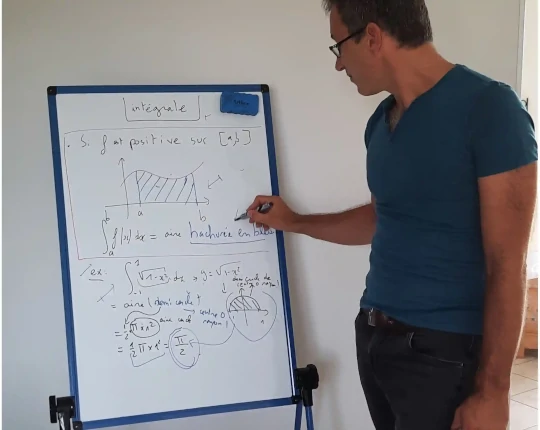 intégrale
• Si f est positive sur [a,b]
a
b
∫_a^b f(x) dx = aire hachurée en bleu
ex: ∫_{-1}^{1} √(1-x²) dx → y = √(1-x²)
demi cercle de
centre 0 rayon 1
= aire (demi cercle)
→ centre 0
rayon 1
-1 1
= 1/2 π × r²
= 1/2 π × 1² = π/2